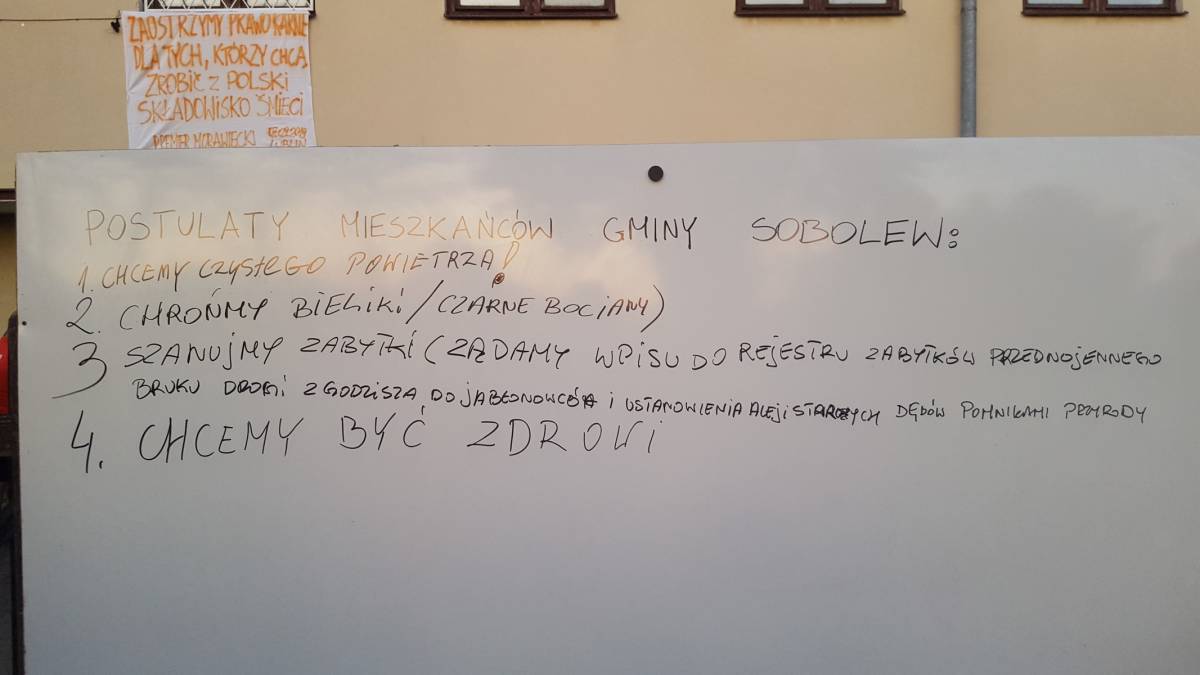 ZAOSTRZYMY PRAWO KARNE
DLA TYCH, KTÓRZY CHCĄ
ZROBIĆ Z POLSKI
SKŁADOWISKO ŚMIECI
PREMIER MORAWIECKI
LUBLIN
POSTULATY MIESZKAŃCÓW GMINY SOBOLEW:
1. CHCEMY CZYSTEGO POWIETRZA!
2. CHROŃMY BIELIKI/CZARNE BOCIANY)
3 SZANUJMY ZABYTKI (ŻĄDAMY WPISU DO REJESTRU ZABYTKÓW PRZEDWOJENNEGO
BRUKU DROGI Z GODZISZA DO JABŁONOWCÓW I USTANOWIENIA ALEJI STARYCH DĘBÓW POMNIKAMI PRZYRODY
4. CHCEMY BYĆ ZDROWI